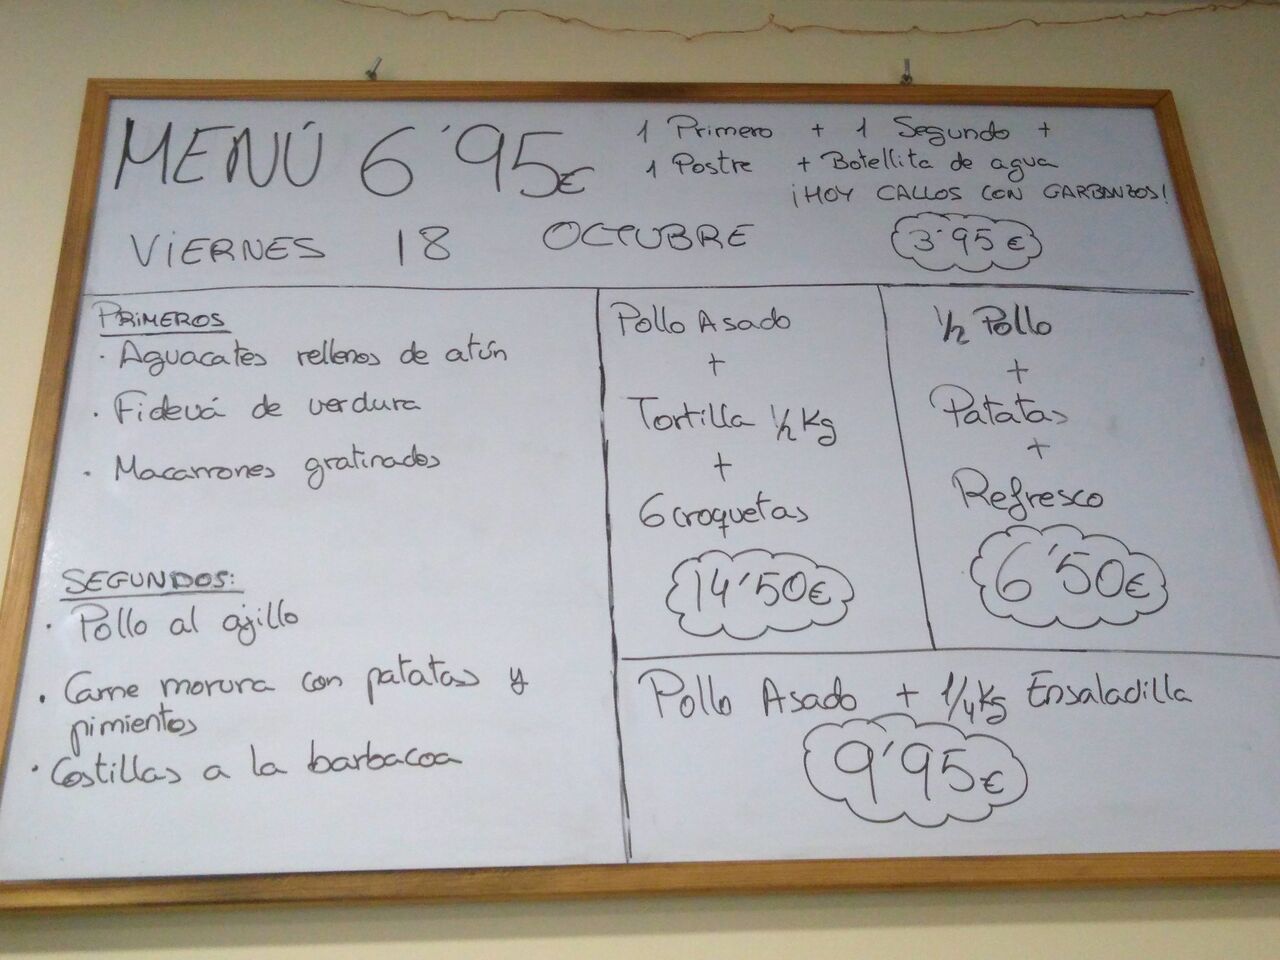 MENÚ 6'95€
1 Primero + 1 Segundo +
1 Postre + Botellita de agua
¡HOY CALLOS CON GARBANZOS!
3'95€
VIERNES 18 OCTUBRE
PRIMEROS
· Aguacates rellenos de atún
· Fidevá de verdura
· Macarrones gratinados
SEGUNDOS:
· Pollo al ajillo
· Carne morura con patatas y
pimientos
· Costillas a la barbacoa
Pollo Asado
+
Tortilla 1/2 Kg
+
6 croquetas
14'50€
1/2 Pollo
+
Patatas
+
Refresco
6'50€
Pollo Asado + 1/4 Kg Ensaladilla
9'95€